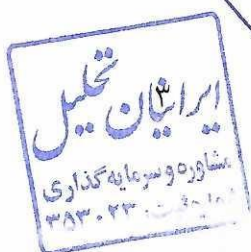 ایرانیان تحلیل
۳
مشاوره و سرمایه گذاری
۳۸۳۰۲۳